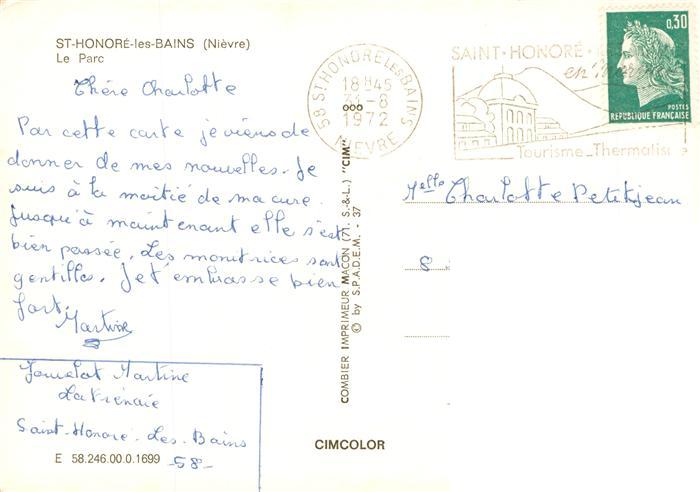 ST-HONORÉ-les-BAINS (Nièvre)
Le Parc
Chère Charlotte
Par cette carte je viens de
donner de mes nouvelles. Je
suis à la moitié de ma cure.
Jusqu'à maintenant elle s'est
bien passée. Les monitrices sont
gentilles. Je t'embrasse bien
fort.
Martine
Martine
Saint-Honoré-Les-Bains
-58-
E 58.246.00.0.1699
COMBIER IMPRIMEUR MACON (71. S.-&-L.) "CIM"
© by S.P.A.D.E.M. - 37
CIMCOLOR
58 ST HONORE LES BAINS
18H45
31-8
1972
NIEVRE
SAINT-HONORÉ
en
Tourisme_Thermalisme
0,30
POSTES
REPUBLIQUE FRANÇAISE
Melle Charlotte Petitjean
8